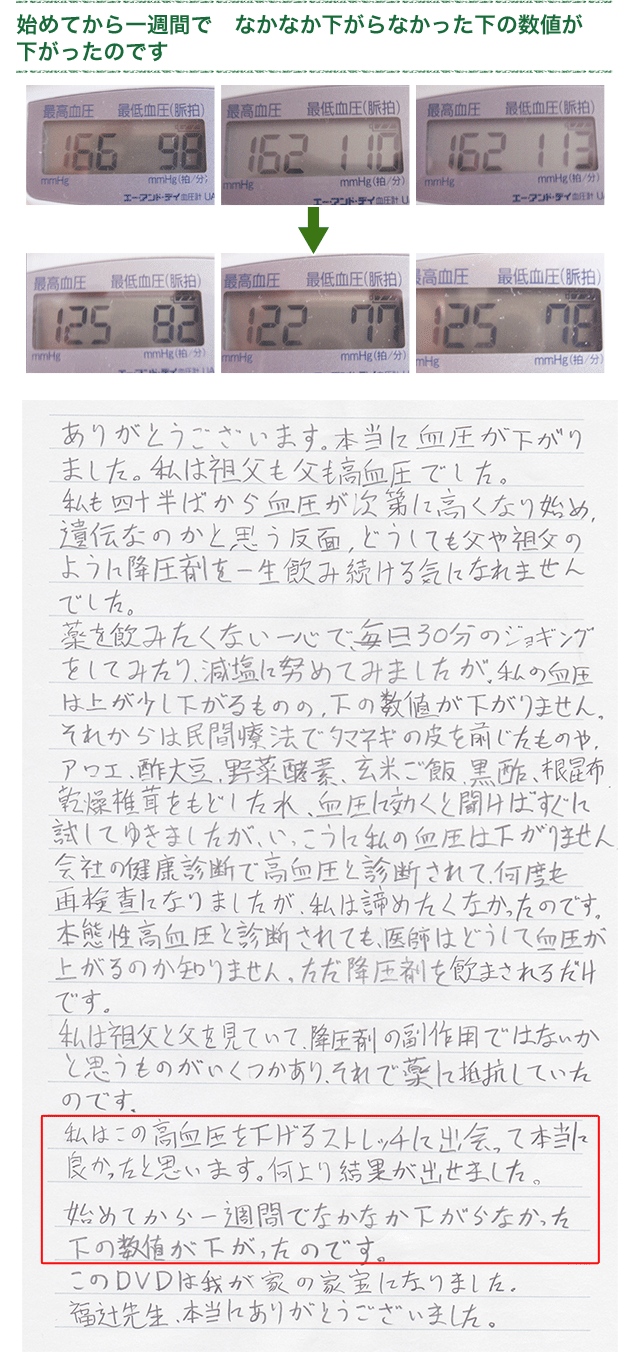 始めてから一週間で　なかなか下がらなかった下の数値が
下がったのです
最高血圧 最低血圧(脈拍)
166 98
mmHg mmHg(拍/分)
エー・アンド・デイ血圧計 UA
最高血圧 最低血圧(脈拍)
162 110
mmHg mmHg(拍/分)
エー・アンド・デイ血圧計 U
最高血圧 最低血圧(脈拍)
162 113
mmHg mmHg(拍/分)
エー・アンド・デイ血圧計 UA
最高血圧 最低血圧(脈拍)
125 82
mmHg mmHg(拍/分)
最高血圧 最低血圧(脈拍)
122 77
mmHg mmHg(拍/分)
最高血圧 最低血圧(脈拍)
125 78
mmHg mmHg(拍/分)
ありがとうございます。本当に血圧が下がり
ました。私は祖父も父も高血圧でした。
私も四十半ばから血圧が次第に高くなり始め,
遺伝なのかと思う反面,どうしても父や祖父の
ように降圧剤を一生飲み続ける気になれません
でした。
薬を飲みたくない一心で、毎日30分のジョギング
をしてみたり、減塩に努めてみましたが、私の血圧
は上が少し下がるものの,下の数値が下がりません。
それからは民間療法でタマネギの皮を煎じたものや,
アロエ、酢大豆、野菜酵素、玄米ご飯、黒酢、根昆布、
乾燥椎茸をもどした水、血圧に効くと聞けばすぐに
試してゆきましたが、いっこうに私の血圧は下がりません
会社の健康診断で高血圧と診断されて、何度も
再検査になりましたが、私は諦めたくなかったのです。
本態性高血圧と診断されても、医師はどうして血圧が
上がるのか知りません。ただ降圧剤を飲まされるだけ
です。
私は祖父と父を見ていて、降圧剤の副作用ではないか
と思うものがいくつかあり、それで薬に抵抗していた
のです。
私はこの高血圧を下げるストレッチに出会って本当に
良かったと思います。何より結果が出せました。
始めてから一週間でなかなか下がらなかった
下の数値が下がったのです。
このDVDは我が家の家宝になりました。
福辻先生、本当にありがとうございました。